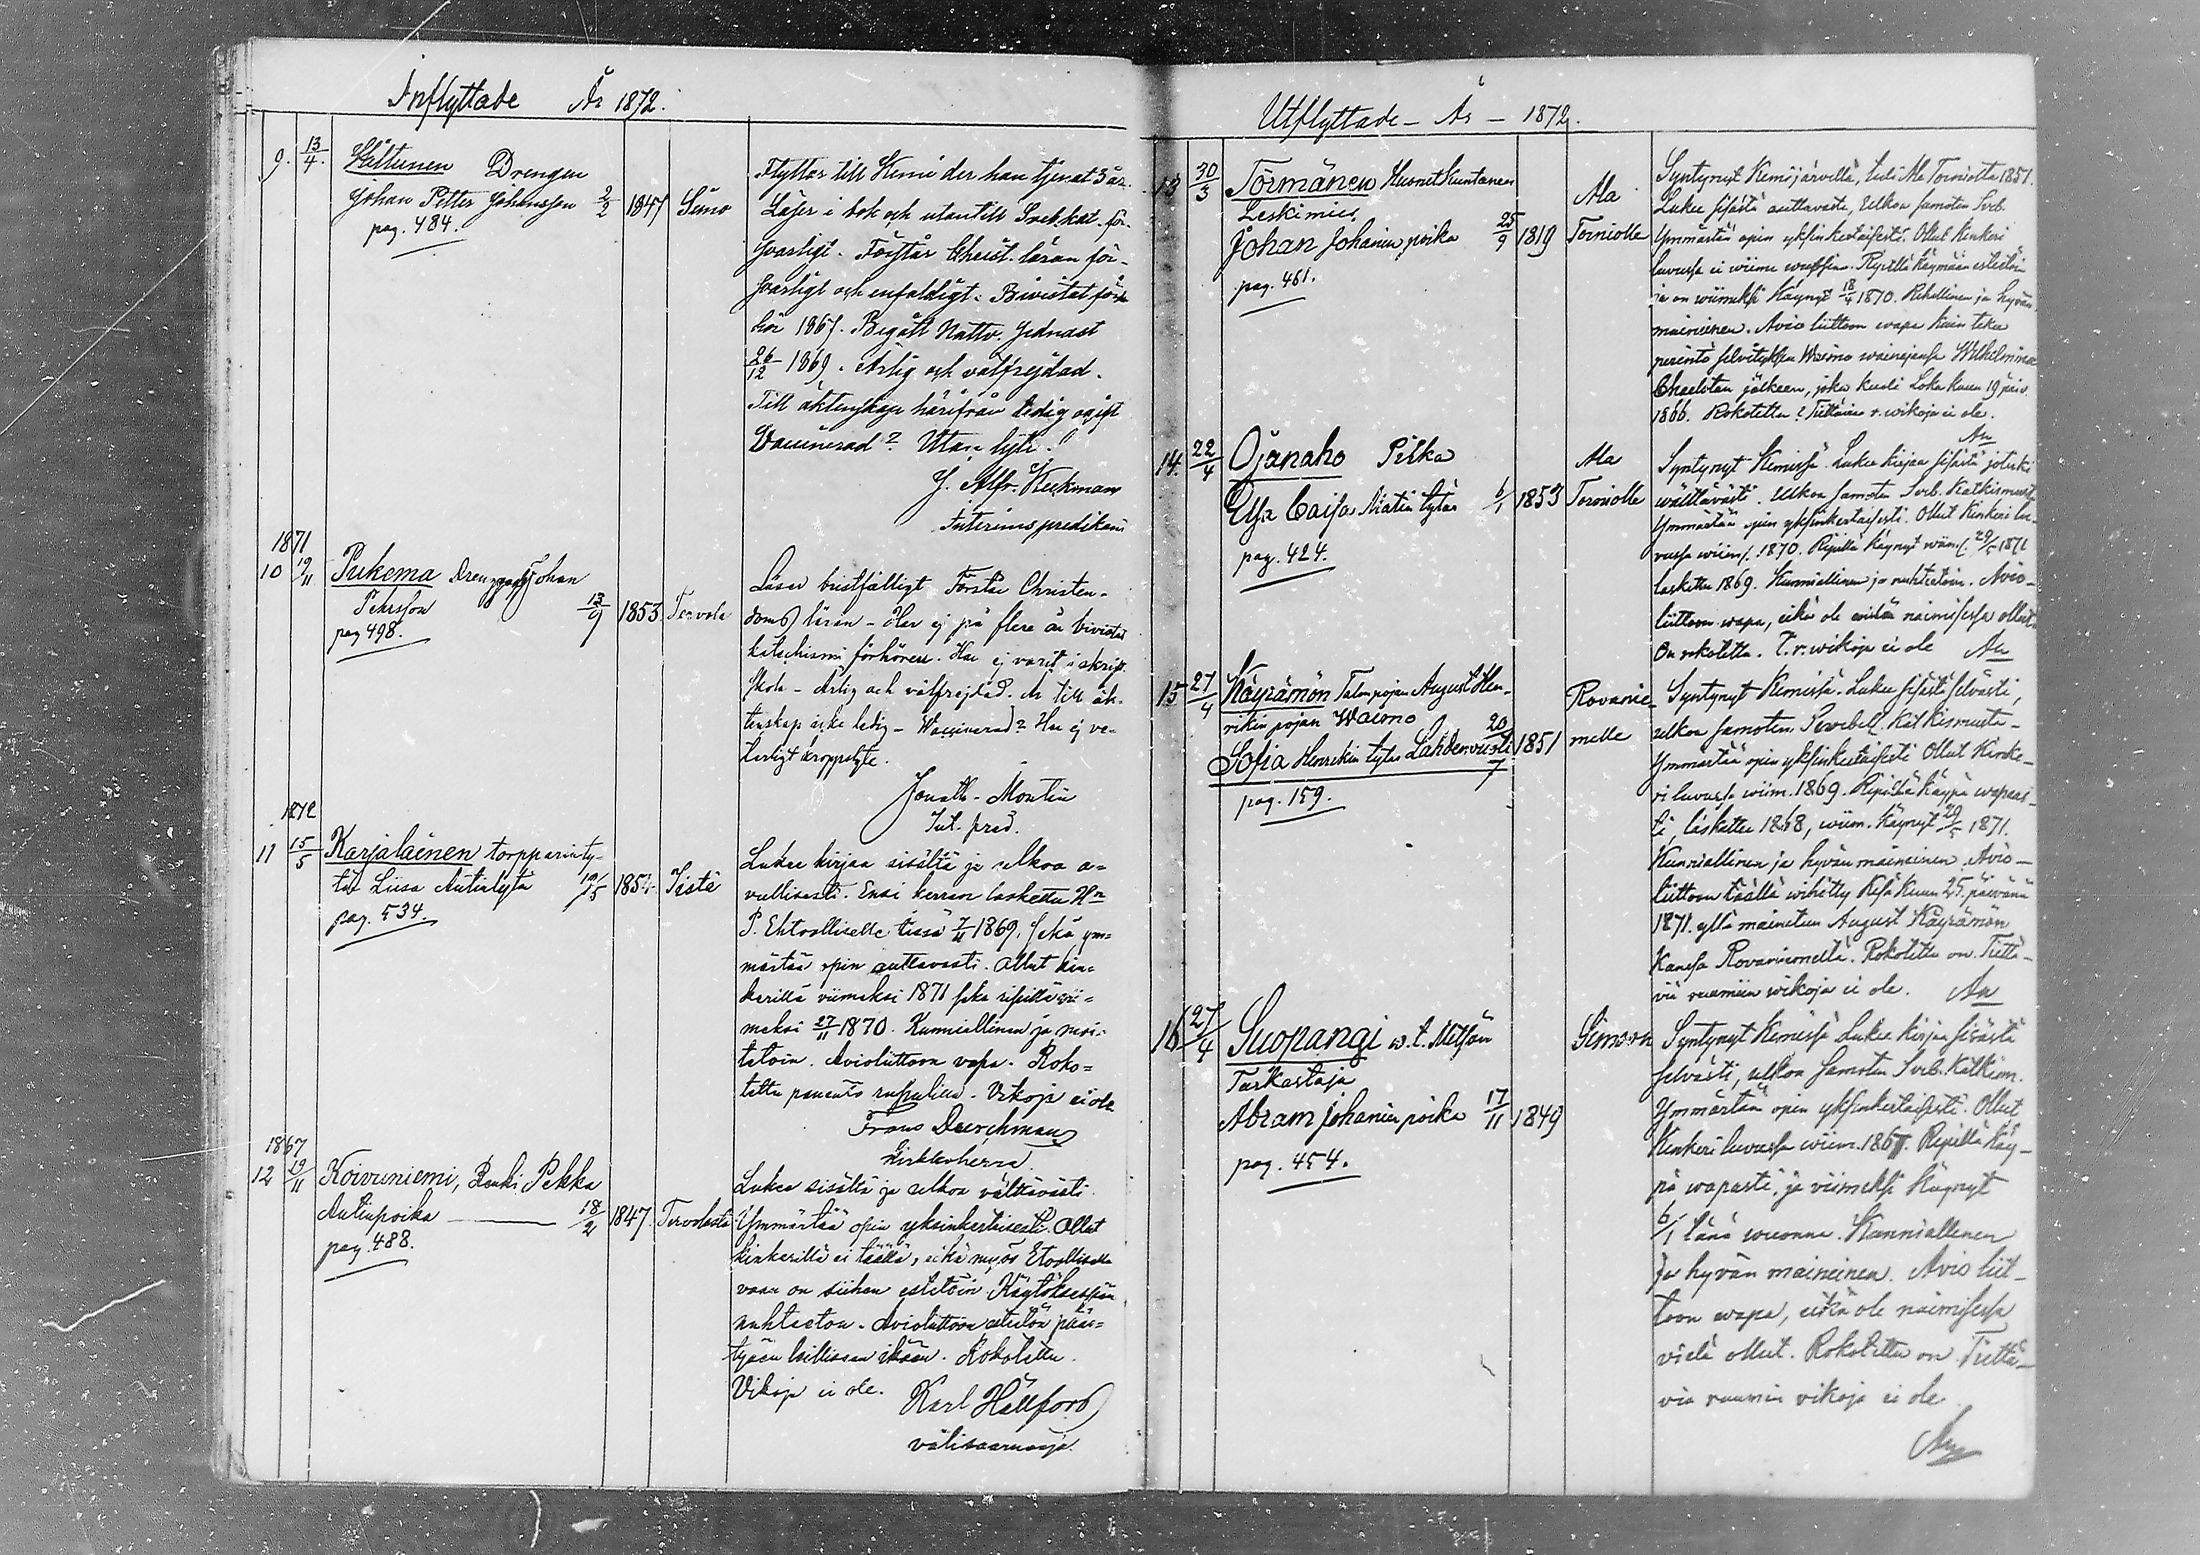 Inflyttade År 1872.
9. 13/4. Hiltunen Drengen
Johan Petter Johansson 2/2 1847 Simo
pag. 484.
Flyttar till Kemi der han tjenat 3 år.
Läser i bok och utantill Sveb. kat. för-
svarligt. Förstår Christ. läran för-
svarligt och enfaldigt. Bivistat för-
hör 1867. Begått Nattv. sednast
26/12 1869. Ärlig och välfrejdad.
Till äktenskap härifrån ledig ogift
Vaccinerad? Utan lyte.
J. Alfr. Heckman
Interimspredikant
1871
10 19/11 Pukema Drengen Johan
Pehrsson 13/9 1853. Tervola
pag 498.
Läser bristfälligt Förstår Christen-
doms läran - Har ej på flere år bivistat
katechismi förhören. Har ej varit i skrift
skola - Ärlig och välfrejdad. Är till äk-
tenskap icke ledig - Vaccinerad? Har ej ve-
terligt kroppslyte.
Jonath. Montin
Int. pred.
1872
11 15/5 Karjalainen torpparinty-
tär Liisa Antintytär 1/5 Iistä
pag. 534.
Lukee kirjaa sisältä ja ulkoa a-
vullisesti. Ensi kerran laskettu Hn
P. Ehtoolliselle tässä 7/11 1869. sekä ym-
märtää opin auttavasti. Ollut kin-
kerillä viimeksi 1871 seka ripillä vii-
meksi 27/11 1870. Kunniallinen ja moi-
tetoin. Avioliittoon vapa. Roko-
tettu Vikoja ei ole
Frans Durchman
Kirkkoherra.
1867
12 19/11 Koivuniemi, Renki Pekka
Antinpoika 18/2 1847. Tervolasta
pag. 488.
Lukee sisältä ja ulkoa välttävästi.
Ymmärtää opin yksinkertaisesti. Ollut
kinkerillä ei täällä, eikä myös Etoollisella
vaan on siihen estetöin Käytöksessään
nuhteeton. Avioliittoon
tyäen laillisen ikään. Rokotettu.
Vikoja ei ole. Karl Hällfors
välisaarnaaja.
Utflyttade - År - 1872.
13 30/3 Törmänen Huonet Kuntanen
Leskimies,
Johan Johanin poika 25/9 1819 Ala
Torniolle
pag. 461.
Syntynyt Kemijärvellä, tuli Ala Torniosta 1851.
Lukee sisästä auttavasti, Ulkoa samoten Sveb.
Ymmärtää opin yksinkertaisesti. Ollut Kinkeri
luvussa ei wiime wuosina. Ripillä Käymään estetöin
ja on wiimeksi Käynyt 18/4 1870. Rehellinen ja hyvän
maineinen. Avio liittoon wapa kuin tekee
perintö selvityksen Waimo wainajansa Wilhelmina
Charlotan jälkeen, joka kuoli Loka kuun 19 päiv
1866. Rokotettu? Tiettäviä r. wikoja ei ole.
An
14. 22/4 Ojanaho Piika
Ulla Caisa Matin tytär 6/1 1853 Ala
Torniolle
pag. 424.
Syntynyt Kemissä. Lukee kirjaa sisästä jotenki
wälttävästi. Ulkoa samoten Sveb. Katkismusta
Ymmärtää opin yksinkertaisesti. Ollut Kinkeri lu-
vussa wiim. 1870. Ripillä Käynyt wiim. 29/5 1871
laskettu 1869. Kunniallinen ja nuhtetoin. Avio-
liittoon wapa, eikä ole naimisessa ollut.
On rokotettu. T. r. wikoja ei ole An
15 27/4 Käyrämön Talon pojan August Hen-
rikin pojan Waimo
Sofia Henrikin tytär Lahdenvuoti 20/7 1851 Rovanie-
melle
pag. 159.
Syntynyt Kemissä. Lukee sisästä selvästi,
ulkoa samoten Swebel. Katkismusta-
Ymmärtää opin yksinkertaisesti Ollut Kinke-
ri luvussa wiim. 1869. Ripillä käypä wapaas-
ti, laskettu 1868, wiim. Käynyt 29/5 1871.
Kunniallinen ja hyvän maineinen. Avio-
liittoon täällä wihitty Kesä Kuun 25. päivänä
1871. yllä mainitun August Käyrämön
Kanssa Rovaniemellä. Rokotettu on. Tiettä-
viä ruumiin wikoja ei ole. An
16 27/4 Suopangi w. t. Metsän
Tarkastaja
Abram Johanin poika 17/11 1849 Simoon
pag. 454.
Syntynyt Kemissä Lukee Kirjaa sisästä
selvästi, ulkoa samoten Sveb. Katkism.
Ymmärtää opin yksinkertaisesti. Ollut
Kinkeri luvussa wiim. Ripillä Käy-
pä wapasti, ja viimeksi Käynyt
6/1 tänä wuonna. Kunniallinen
ja hyvän maineinen. Avio liit-
toon wapa, eikä ole naimisessa
vielä ollut. Rokotettu on. Tiettä-
viä ruumin vikoja ei ole.
An